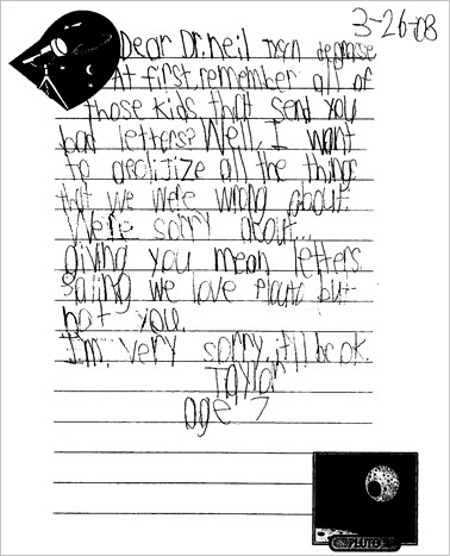 3-26-08
Dear Dr. Neil Tison degrasse
At first, remember all of
those kids that send you
bad letters? Well, I want
to apolijize all the things
that we were wrong about.
We're sorry about...
giving you mean letters
saiing we love Plauto but
not you.
I'm very sorry. it'll be ok.
Taylor
age 7
PLUTO